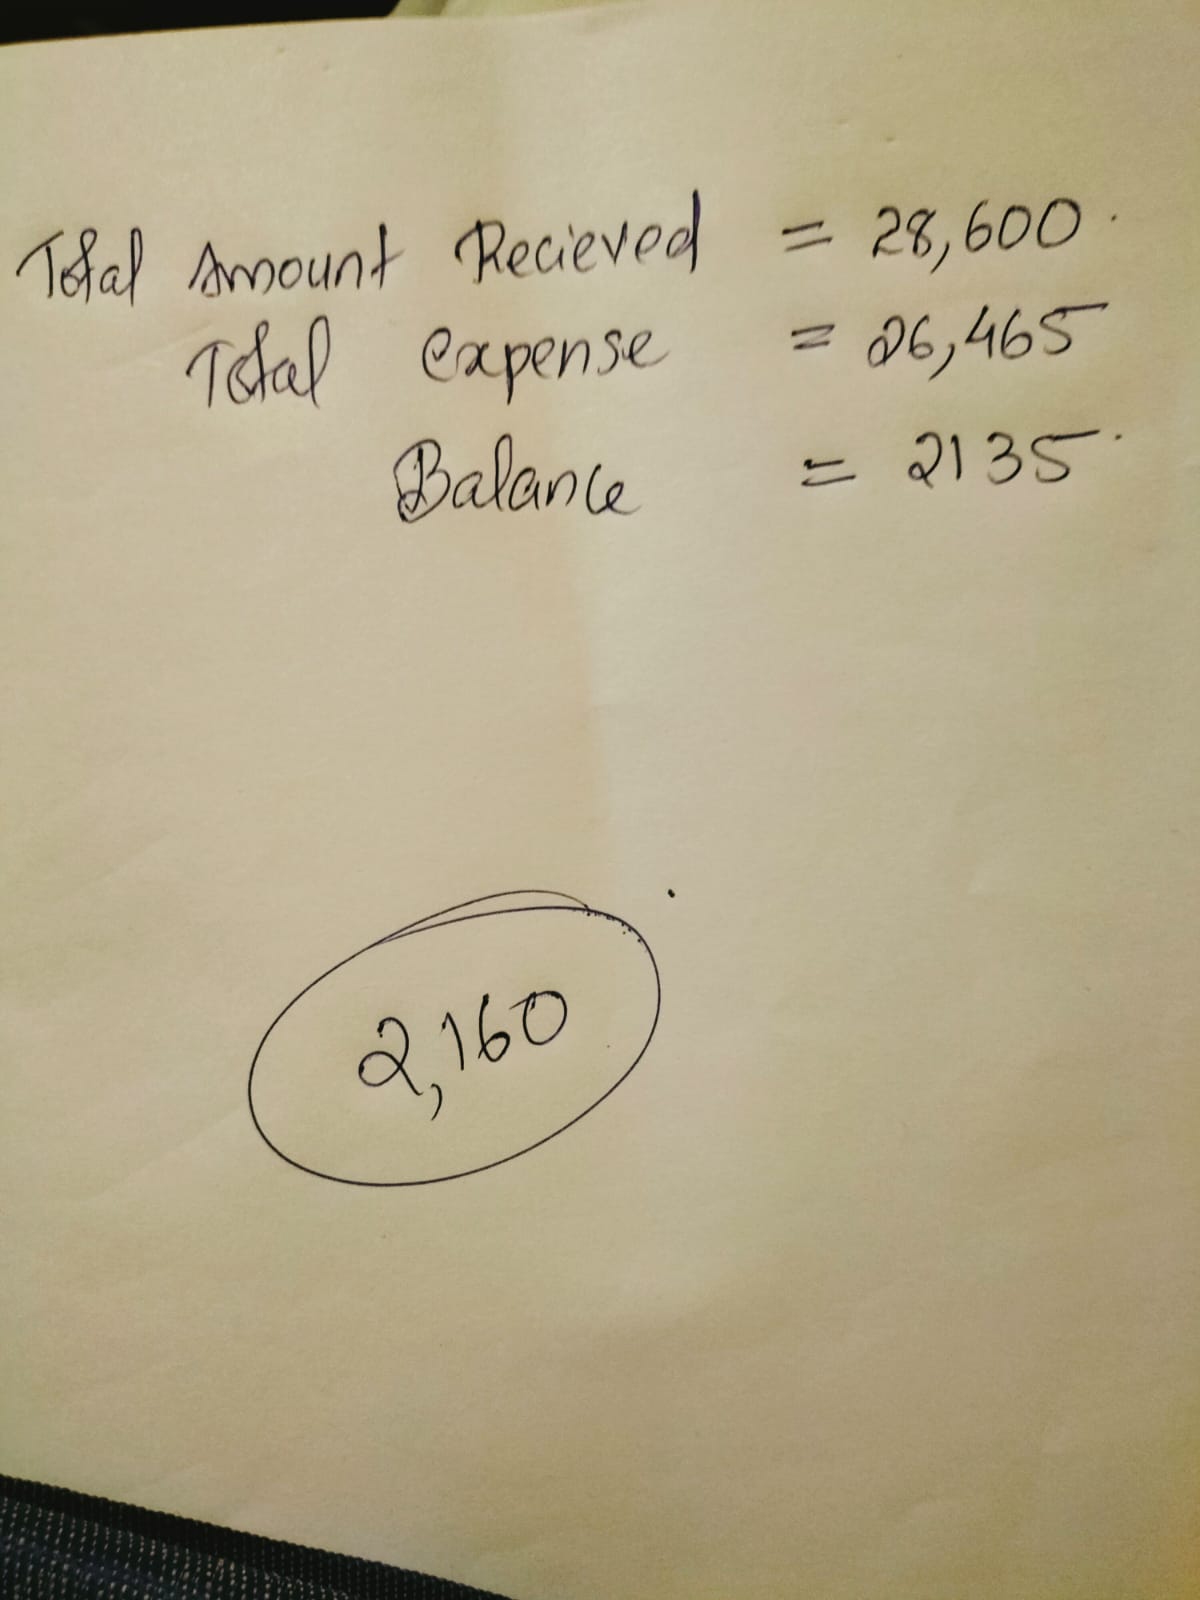 Total Amount Recieved = 28,600.
Total expense = 26,465
Balance = 2135.
2,160